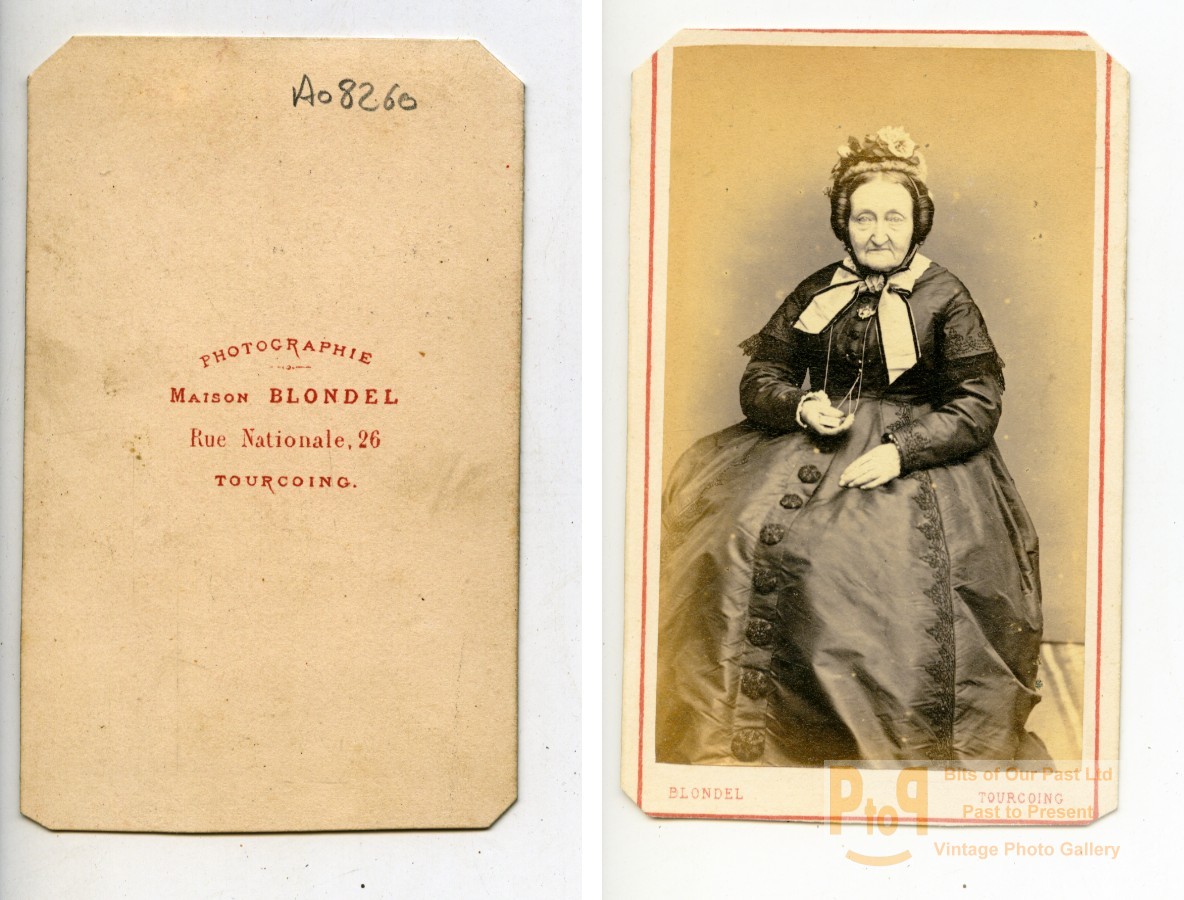 Ao8260
PHOTOGRAPHIE
MAISON BLONDEL
Rue Nationale, 26
TOURCOING.
BLONDEL
TOURCOING
PtoP
Bits of Our Past Ltd
Past to Present
Vintage Photo Gallery